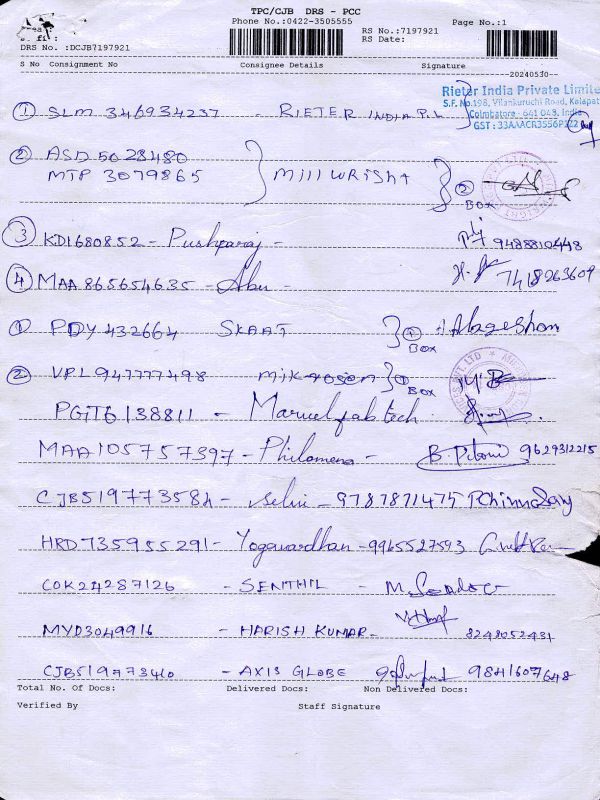 TPC/CJB DRS - PCC
Phone No.:0422-3505555 Page No.:1
RS No.:7197921
RS Date:
DRS No. :DCJB7197921
S No Consignment No Consignee Details Signature
20240530
Rieter India Private Limite
S.F. No.198, Vilankuruchi Road, Kalapat
Coimbatore - 641 048, India
GST : 33AAACR3556P1Z2
① SLM 346934237 - RIETER INDIA P.L
② ASD 5028480
MTP 3079865 } Mill Wright } ② BOX
③ KDI680852 - Pushparaj - 9488810448
④ MAA 865654635 - Abu - 7418263609
① PDY 432664 SKAAT } ① BOX Alageshan
② VPL 947777498 } ① BOX
PGT6138811 - Marvel fab tech
MAA105757397 - Philomena - 9629312215
CJB519773584 - Selvi - 9787871475
HRD735955291 - Yogavardhan - 9965527593
COK24287126 - SENTHIL -
MYD3049916 - HARISH KUMAR - 8248052431
CJB519773410 - AXIS GLOBE 9841607648
Total No. Of Docs: Delivered Docs: Non Delivered Docs:
Verified By Staff Signature